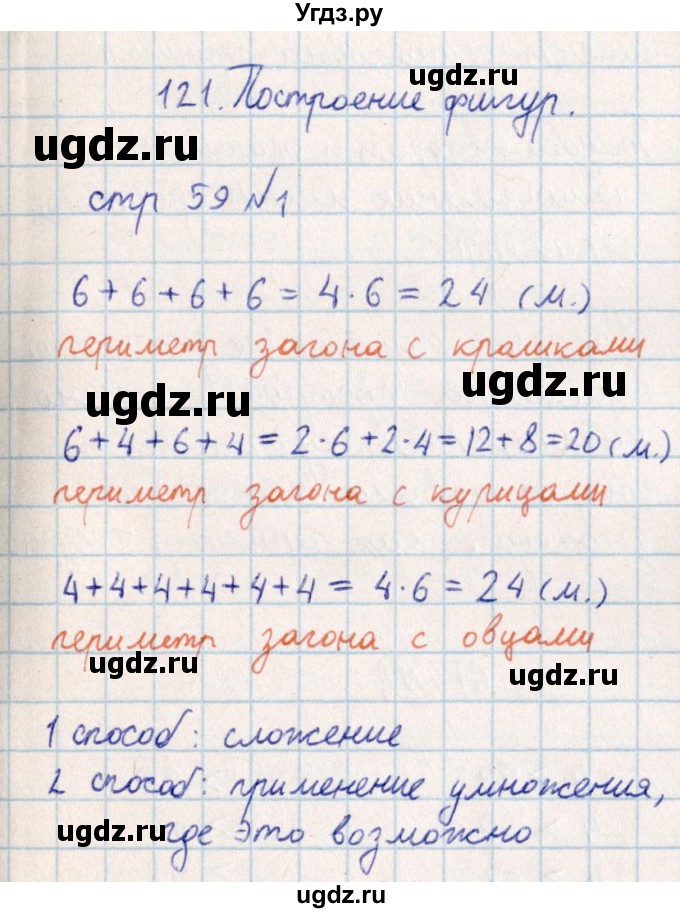 Угдз.ру
ugdz.ru
121. Построение фигур.
ugdz.ru
стр 59 №1
6 + 6 + 6 + 6 = 4 · 6 = 24 (м.)
периметр загона с крашками
ugdz.ru
ugdz.ru
6 + 4 + 6 + 4 = 2 · 6 + 2 · 4 = 12 + 8 = 20 (м.)
периметр загона с курицами
4 + 4 + 4 + 4 + 4 + 4 = 4 · 6 = 24 (м.)
периметр загона с овцами
ugdz.ru
ugdz.ru
1 способ: сложение
2 способ: применение умножения,
ugdz.ru
где это возможно
ugdz.ru
ugdz.ru